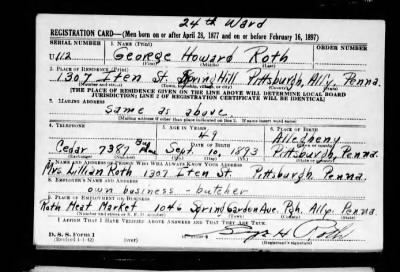 24th Ward
REGISTRATION CARD—(Men born on or after April 28, 1877 and on or before February 16, 1897)
SERIAL NUMBER 1. NAME (Print)
U 112 George Howard Roth
(First) (Middle) (Last)
2. PLACE OF RESIDENCE (Print)
1307 Iten St. Spring Hill Pittsburgh, Ally. Penna.
(Number and street) (Town, township, village, or city) (County) (State)
[THE PLACE OF RESIDENCE GIVEN ON THE LINE ABOVE WILL DETERMINE LOCAL BOARD
JURISDICTION; LINE 2 OF REGISTRATION CERTIFICATE WILL BE IDENTICAL]
3. MAILING ADDRESS
Same as above.
[Mailing address if other than place indicated on line 2. If same insert word same]
4. TELEPHONE 5. AGE IN YEARS 6. PLACE OF BIRTH
49 Allegheny
DATE OF BIRTH
Cedar 7387 Sept. 10, 1893 Pittsburgh, Penna.
7. NAME AND ADDRESS OF PERSON WHO WILL ALWAYS KNOW YOUR ADDRESS
Mrs. Lillian Roth 1307 Iten St. Pittsburgh, Penna.
8. EMPLOYER'S NAME AND ADDRESS
own business - butcher
9. PLACE OF EMPLOYMENT OR BUSINESS
Roth Meat Market 1046 Spring Garden Ave. Pgh. Ally. Penna.
I AFFIRM THAT I HAVE VERIFIED ABOVE ANSWERS AND THAT THEY ARE TRUE.
D. S. S. Form 1
(Revised 4-1-42) (over)
Roth
(Registrant's signature)